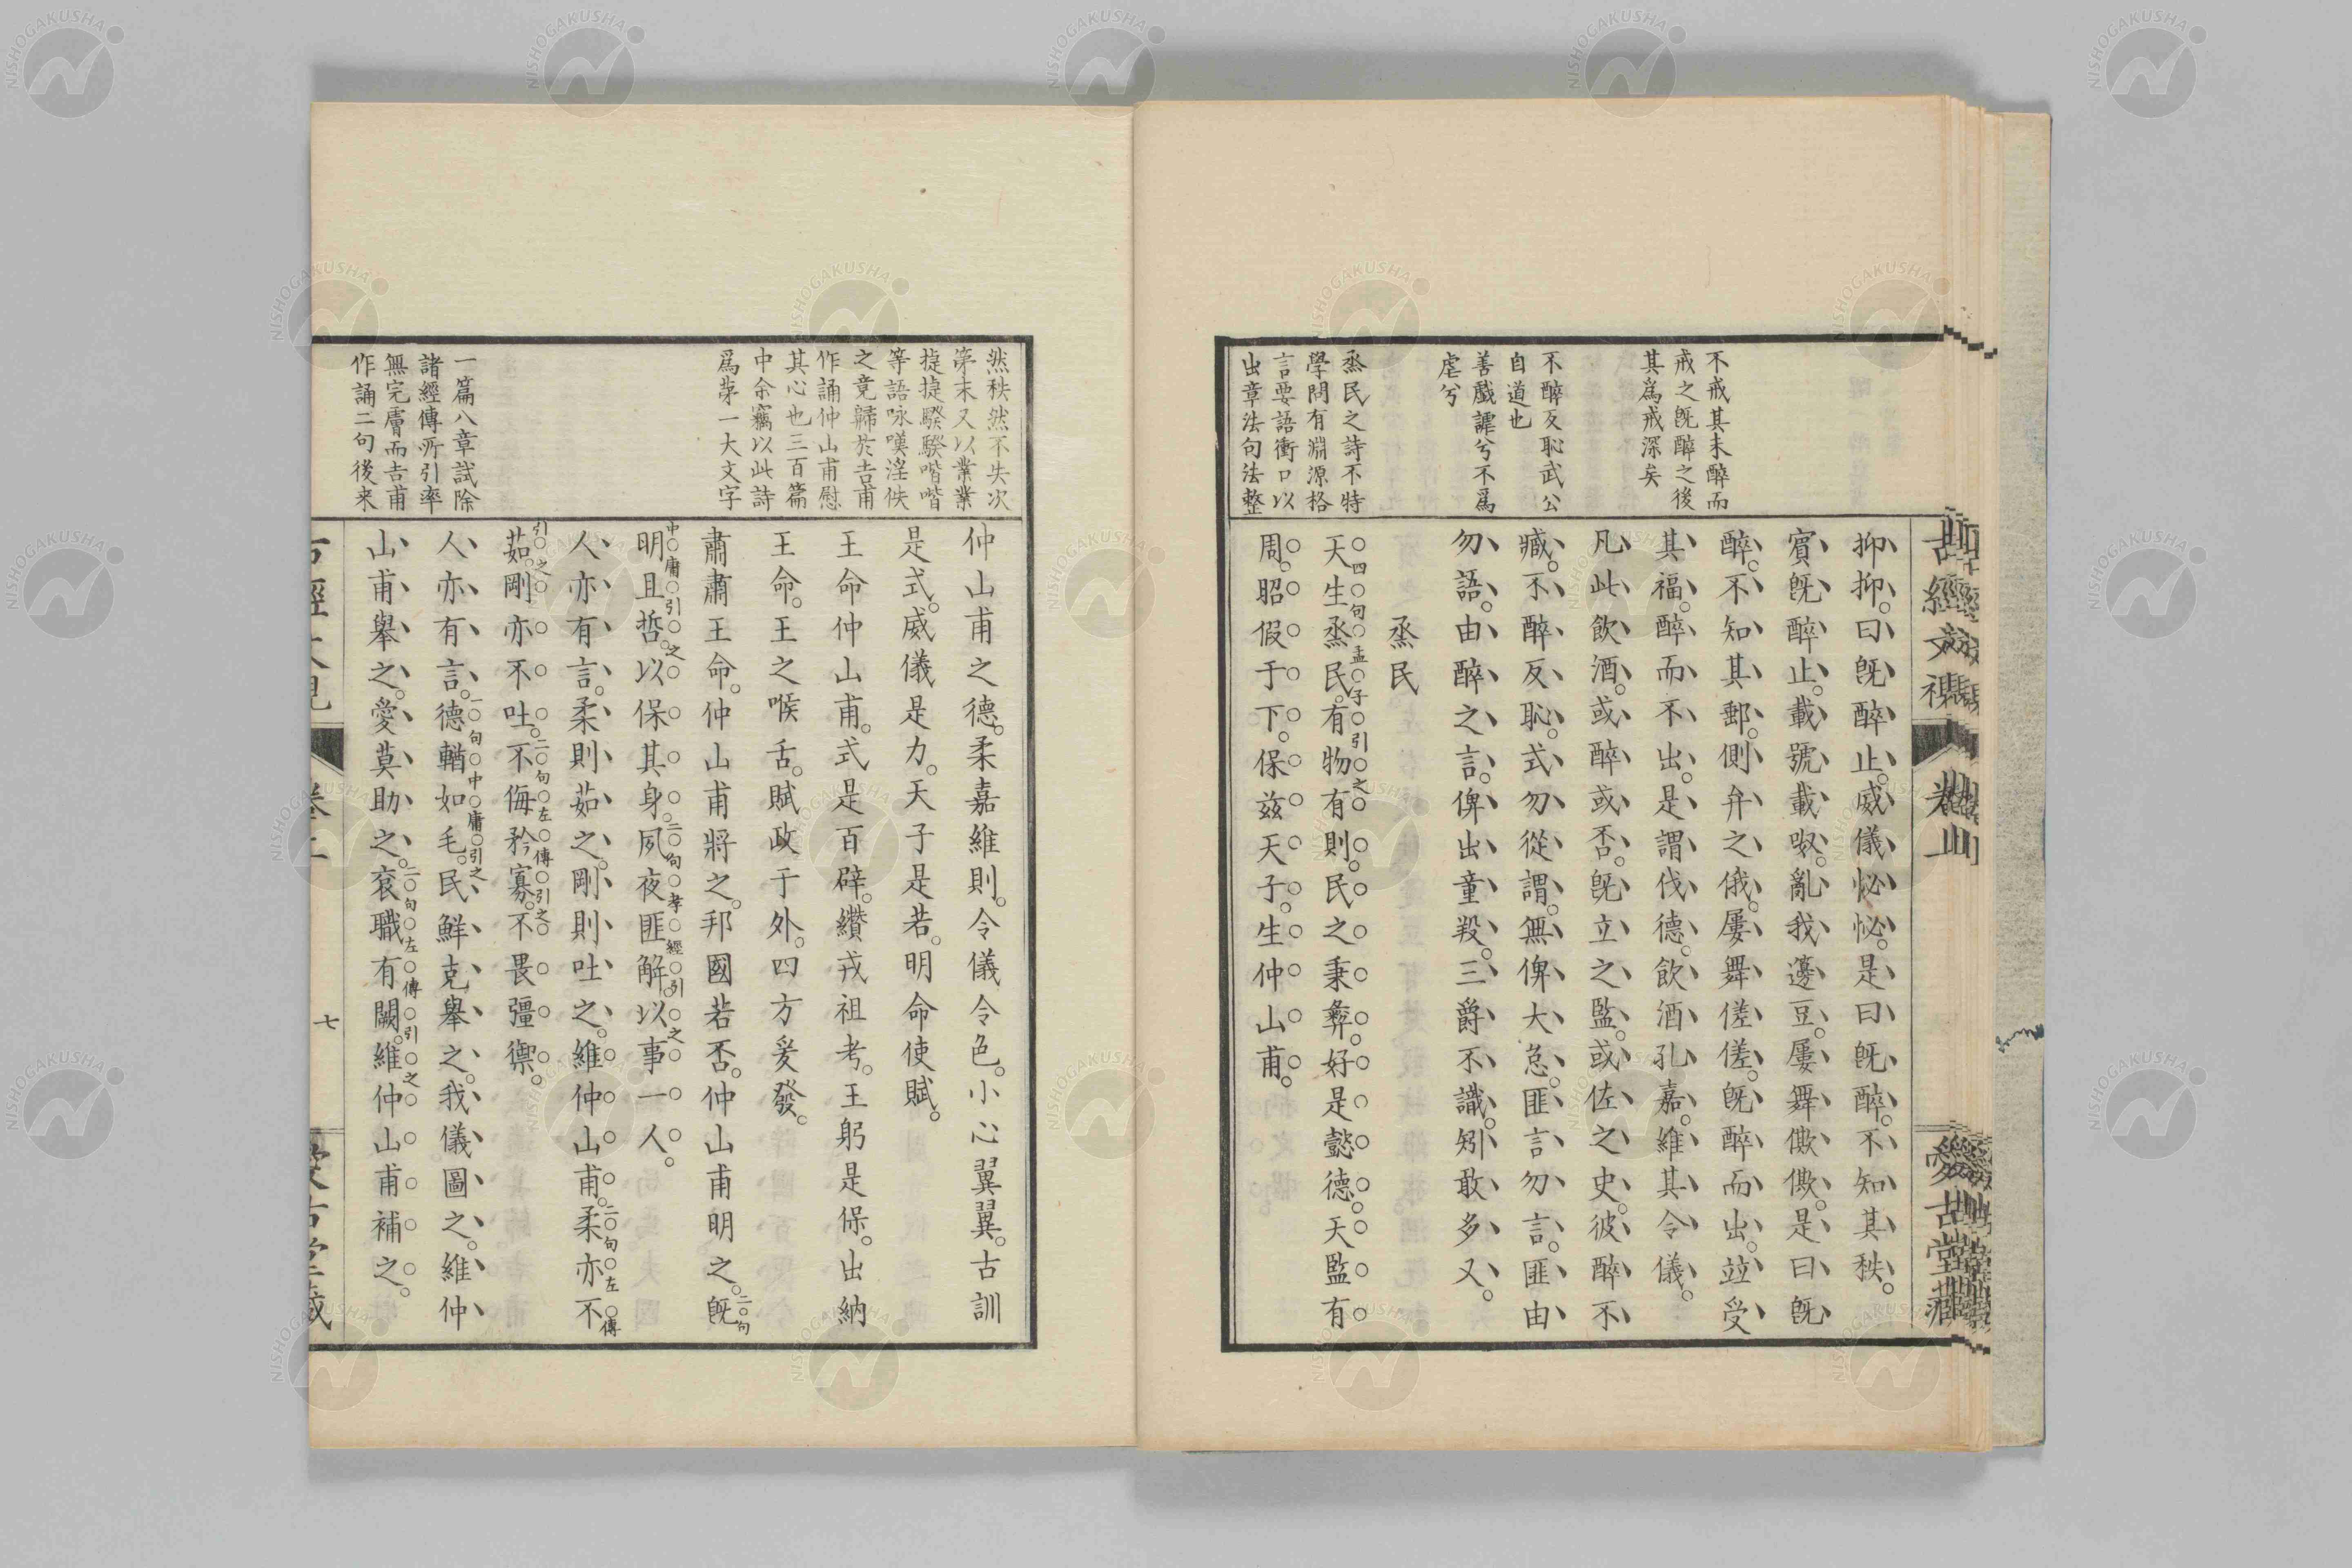 不戒其未醉而
戒之既醉之後
其爲戒深矣
不醉反恥武公
自道也
善戲謔兮不爲
虐兮
烝民之詩不特
學問有淵源格
言要語衝口以
出章法句法整
抑抑。曰既醉止。威儀怭怭。是曰既醉。不知其秩。
賓既醉止。載號載呶。亂我籩豆。屢舞僛僛。是曰既
醉。不知其郵。側弁之俄。屢舞傞傞。既醉而出。竝受
其福。醉而不出。是謂伐德。飲酒孔嘉。維其令儀。
凡此飲酒。或醉或否。既立之監。或佐之史。彼醉不
臧。不醉反恥。式勿從謂。無俾大怠。匪言勿言。匪由
勿語。由醉之言。俾出童羖。三爵不識。矧敢多又。
烝民
天生烝民。有物有則。民之秉彝。好是懿德。天監有
四句孟子引之
周。昭假于下。保茲天子。生仲山甫。
古經文視
愛古堂藏
然秩然不失次
第末又以業業
捷捷騤騤喈喈
等語咏嘆淫佚
之竟歸於吉甫
作誦仲山甫慰
其心也三百篇
中余竊以此詩
爲第一大文字
一篇八章試除
諸經傳所引率
無完膚而吉甫
作誦二句後来
仲山甫之德。柔嘉維則。令儀令色。小心翼翼。古訓
是式。威儀是力。天子是若。明命使賦。
王命仲山甫。式是百辟。纘戎祖考。王躬是保。出納
王命。王之喉舌。賦政于外。四方爰發。
肅肅王命。仲山甫將之。邦國若否。仲山甫明之。既
二句
明且哲。以保其身。夙夜匪解。以事一人。
中庸引之 二句孝經引之
人亦有言。柔則茹之。剛則吐之。維仲山甫。柔亦不
二句左傳
茹。剛亦不吐。不侮矜寡。不畏彊禦。
引之 二句左傳引之
人亦有言。德輶如毛。民鮮克舉之。我儀圖之。維仲
一句中庸引之
山甫舉之。愛莫助之。袞職有闕。維仲山甫補之。
二句左傳引之
七